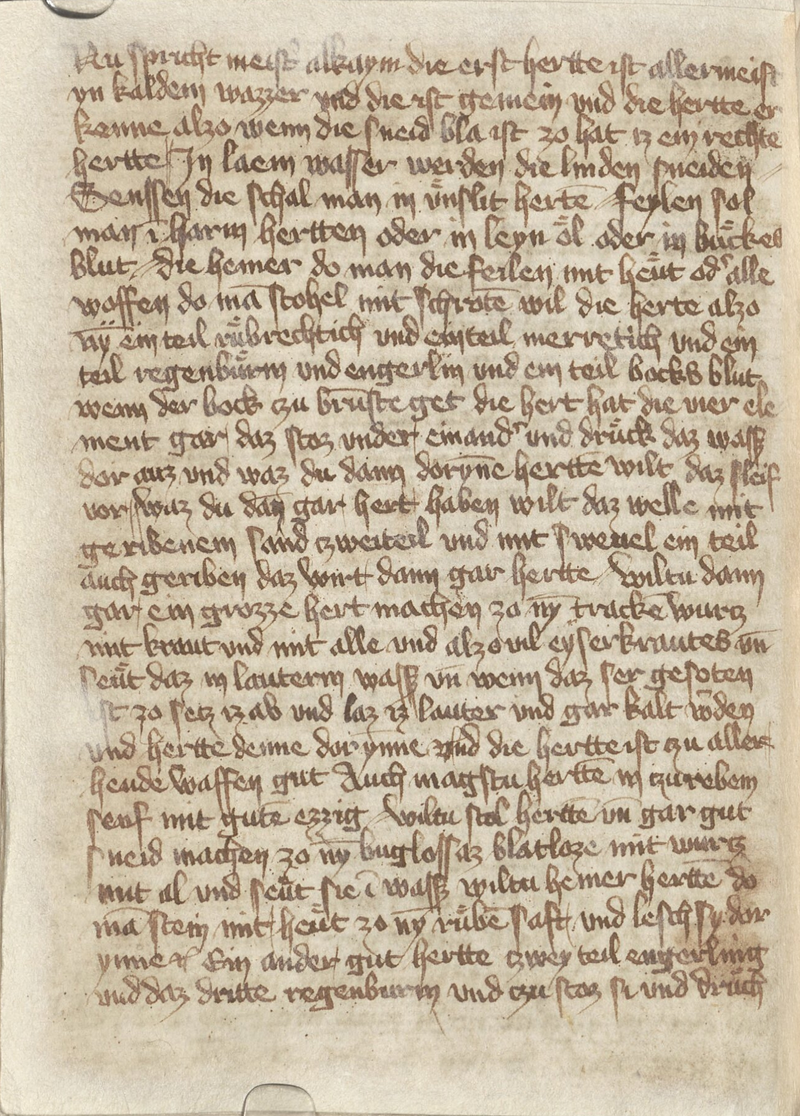 Nu spricht meist' alkaym die erst hertte ist allermeist
yn kaldem wazzer vnd die ist gemein vnd die hertte er
kenne alzo wenn die sneid bla ist zo hat iz ein rechte
hertte In laem wasser werden die linden sneiden
Senssen die schal man in vnslit hertē feylen sol
man ī harm hertten oder in leyn öl oder in buckes
blut die hemer do man die feilen mit heut od' alle
woffen do mā stohel mit schrotē wil die herte alzo
nȳ ein teil rubrechtich vnd ein teil merretich vnd ein
teil regenburm vnd engerlin vnd ein teil bocks blut
wenn der bock czu brunste get die hert hat die vier ele
ment gar daz stoz vnder einand' vnd druck daz wass'
dor auz vnd waz du dann dorynne hertte wilt daz sleif
vor waz du dañ gar hert haben wilt daz welle mit
geribenem sand czweiteil vnd mit sweuel ein teil
auch geriben daz wirt dann gar hertte wiltu dann
gar ein grozze hert machen zo nȳ trackē wurcz
mit kraut vnd mit alle vnd alzo uil eyserkrautes vn̄
seut daz in lauterm wass' vn̄ wenn daz ser gesoten
ist zo secz iz ab vnd laz iz lauter vnd gar kalt w'den
vnd hertte denne dor ynne vnd die hertte ist czu aller
hende waffen gut Auch magstu herttē in czurebem
senf mit gutē ezzig wiltu stol herttē vn̄ gar gut
sneid machen zo nȳ buglossaz blatloze mit wurcz
mit al vnd seut sie ī wass' wiltu hemer herttē do
mā stein mit heut zo nȳ rubē saft vnd lesch sy dor
ynne Ein ander gut hertte czwey teil engerling
vnd daz dritte regenburm vnd czu stoz si vnd druch